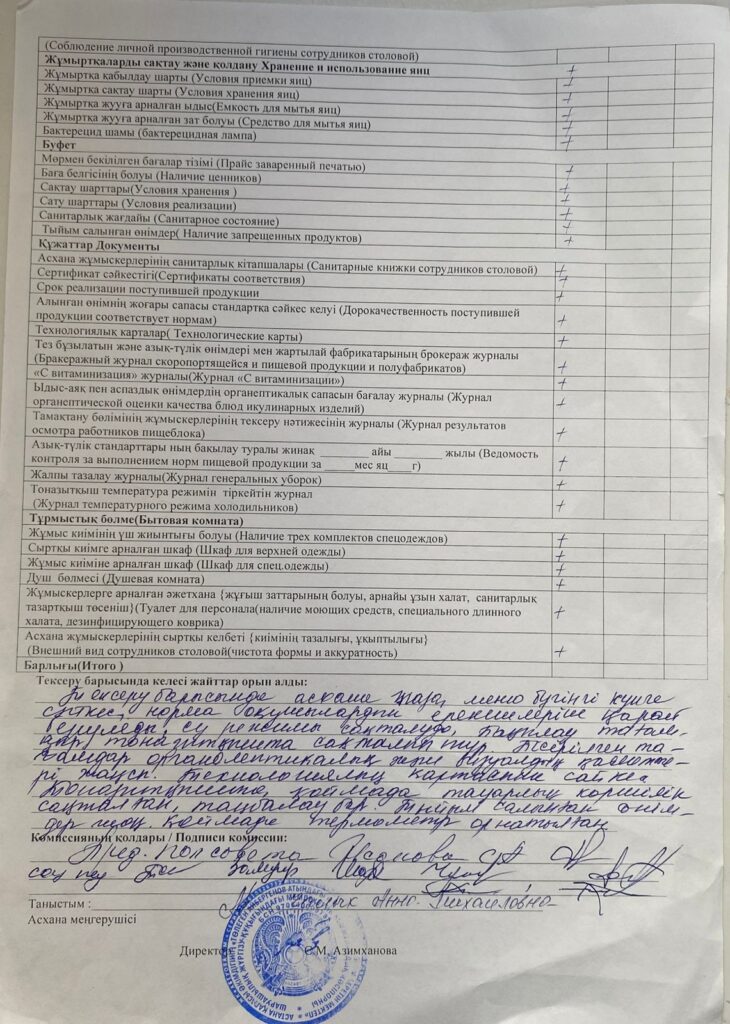 (Соблюдение личной производственной гигиены сотрудников столовой)
Жұмыртқаларды сақтау және қолдану Хранение и использование яиц +
Жұмыртқа қабылдау шарты (Условия приемки яиц) +
Жұмыртқа сақтау шарты (Условия хранения яиц) +
Жұмыртқа жууға арналған ыдыс(Емкость для мытья яиц) +
Жұмыртқа жууға арналған зат болуы (Средство для мытья яиц) +
Бактерецид шамы (бактерецидная лампа) +
Буфет
Мөрмен бекілілген бағалар тізімі (Прайс заваренный печатью) +
Баға белгісінің болуы (Наличие ценников) +
Сақтау шарттары(Условия хранения ) +
Сату шарттары (Условия реализации) +
Санитарлық жағдайы (Санитарное состояние) +
Тыйым салынған өнімдер( Наличие запрещенных продуктов) +
Құжаттар Документы
Асхана жұмыскерлерінің санитарлық кітапшалары (Санитарные книжки сотрудников столовой) +
Сертификат сәйкестігі(Сертификаты соответствия) +
Срок реализации поступившей продукции +
Алынған өнімнің жоғары сапасы стандартқа сәйкес келуі (Дорокачественность поступившей
продукции соответствует нормам) +
Технологиялық карталар( Технологические карты) +
Тез бұзылатын және азық-түлік өнімдері мен жартылай фабрикатарының брокераж журналы
(Бракеражный журнал скоропортящейся и пищевой продукции и полуфабрикатов) +
«С витаминизация» журналы(Журнал «С витаминизации») +
Ыдыс-аяқ пен аспаздық өнімдердің органептикалық сапасын бағалау журналы (Журнал
органептической оценки качества блюд икулинарных изделий) +
Тамақтану бөлімінің жұмыскерлерінің тексеру нәтижесінің журналы (Журнал результатов
осмотра работников пищеблока) +
Азық-түлік стандарттары ның бақылау туралы жинақ ________ айы ________ жылы (Ведомость
контроля за выполнением норм пищевой продукции за _____мес яц____г) +
Жалпы тазалау журналы(Журнал генеральных уборок) +
Тоназытқыш температура режимін тіркейтін журнал
(Журнал температурного режима холодильников) +
Тұрмыстық бөлме(Бытовая комната)
Жұмыс киімінің үш жиынтығы болуы (Наличие трех комплектов спецодеждов) +
Сыртқы киімге арналған шкаф (Шкаф для верхней одежды) +
Жұмыс киіміне арналған шкаф (Шкаф для спец.одежды) +
Душ бөлмесі (Душевая комната) +
Жұмыскерлерге арналған әжетхана {жұғыш заттарының болуы, арнайы ұзын халат, санитарлық
тазартқыш төсеніш}(Туалет для персонала(наличие моющих средств, специального длинного
халата, дезинфицирующего коврика) +
Асхана жұмыскерлерінің сыртқы келбеті {киімінің тазалығы, ұқыптылығы}
(Внешний вид сотрудников столовой(чистота формы и аккуратность) +
Барлығы(Итого )
Тексеру барысында келесі жайттар орын алды:
Тексеру барысында асхана таза, меню бүгінгі күнге
сәйкес, норма оқушылардың ерекшелеріне қарай
беруледі, су режимы сақталуда, бақылау тағам-
дар тоңазытқышта сақталып тұр. Пісірілген та-
ғамдар органолептикалық және визуалдық қасиетте-
рі жақсы. Технологиялық картаның сәйкес.
Тоңазытқышта, қоймада тауарлық көршілік
сақталған, таңбалау бар. Тыйым салынған өнім-
дер жоқ. Қоймада термометр орнатылған.
Комиссияның қолдары / Подписи комиссии:
Пред. Попсовета Исанова
соц пед
Таныстым : Анна Михайловна
Асхана меңгерушісі
Директор С.М. Азимханова